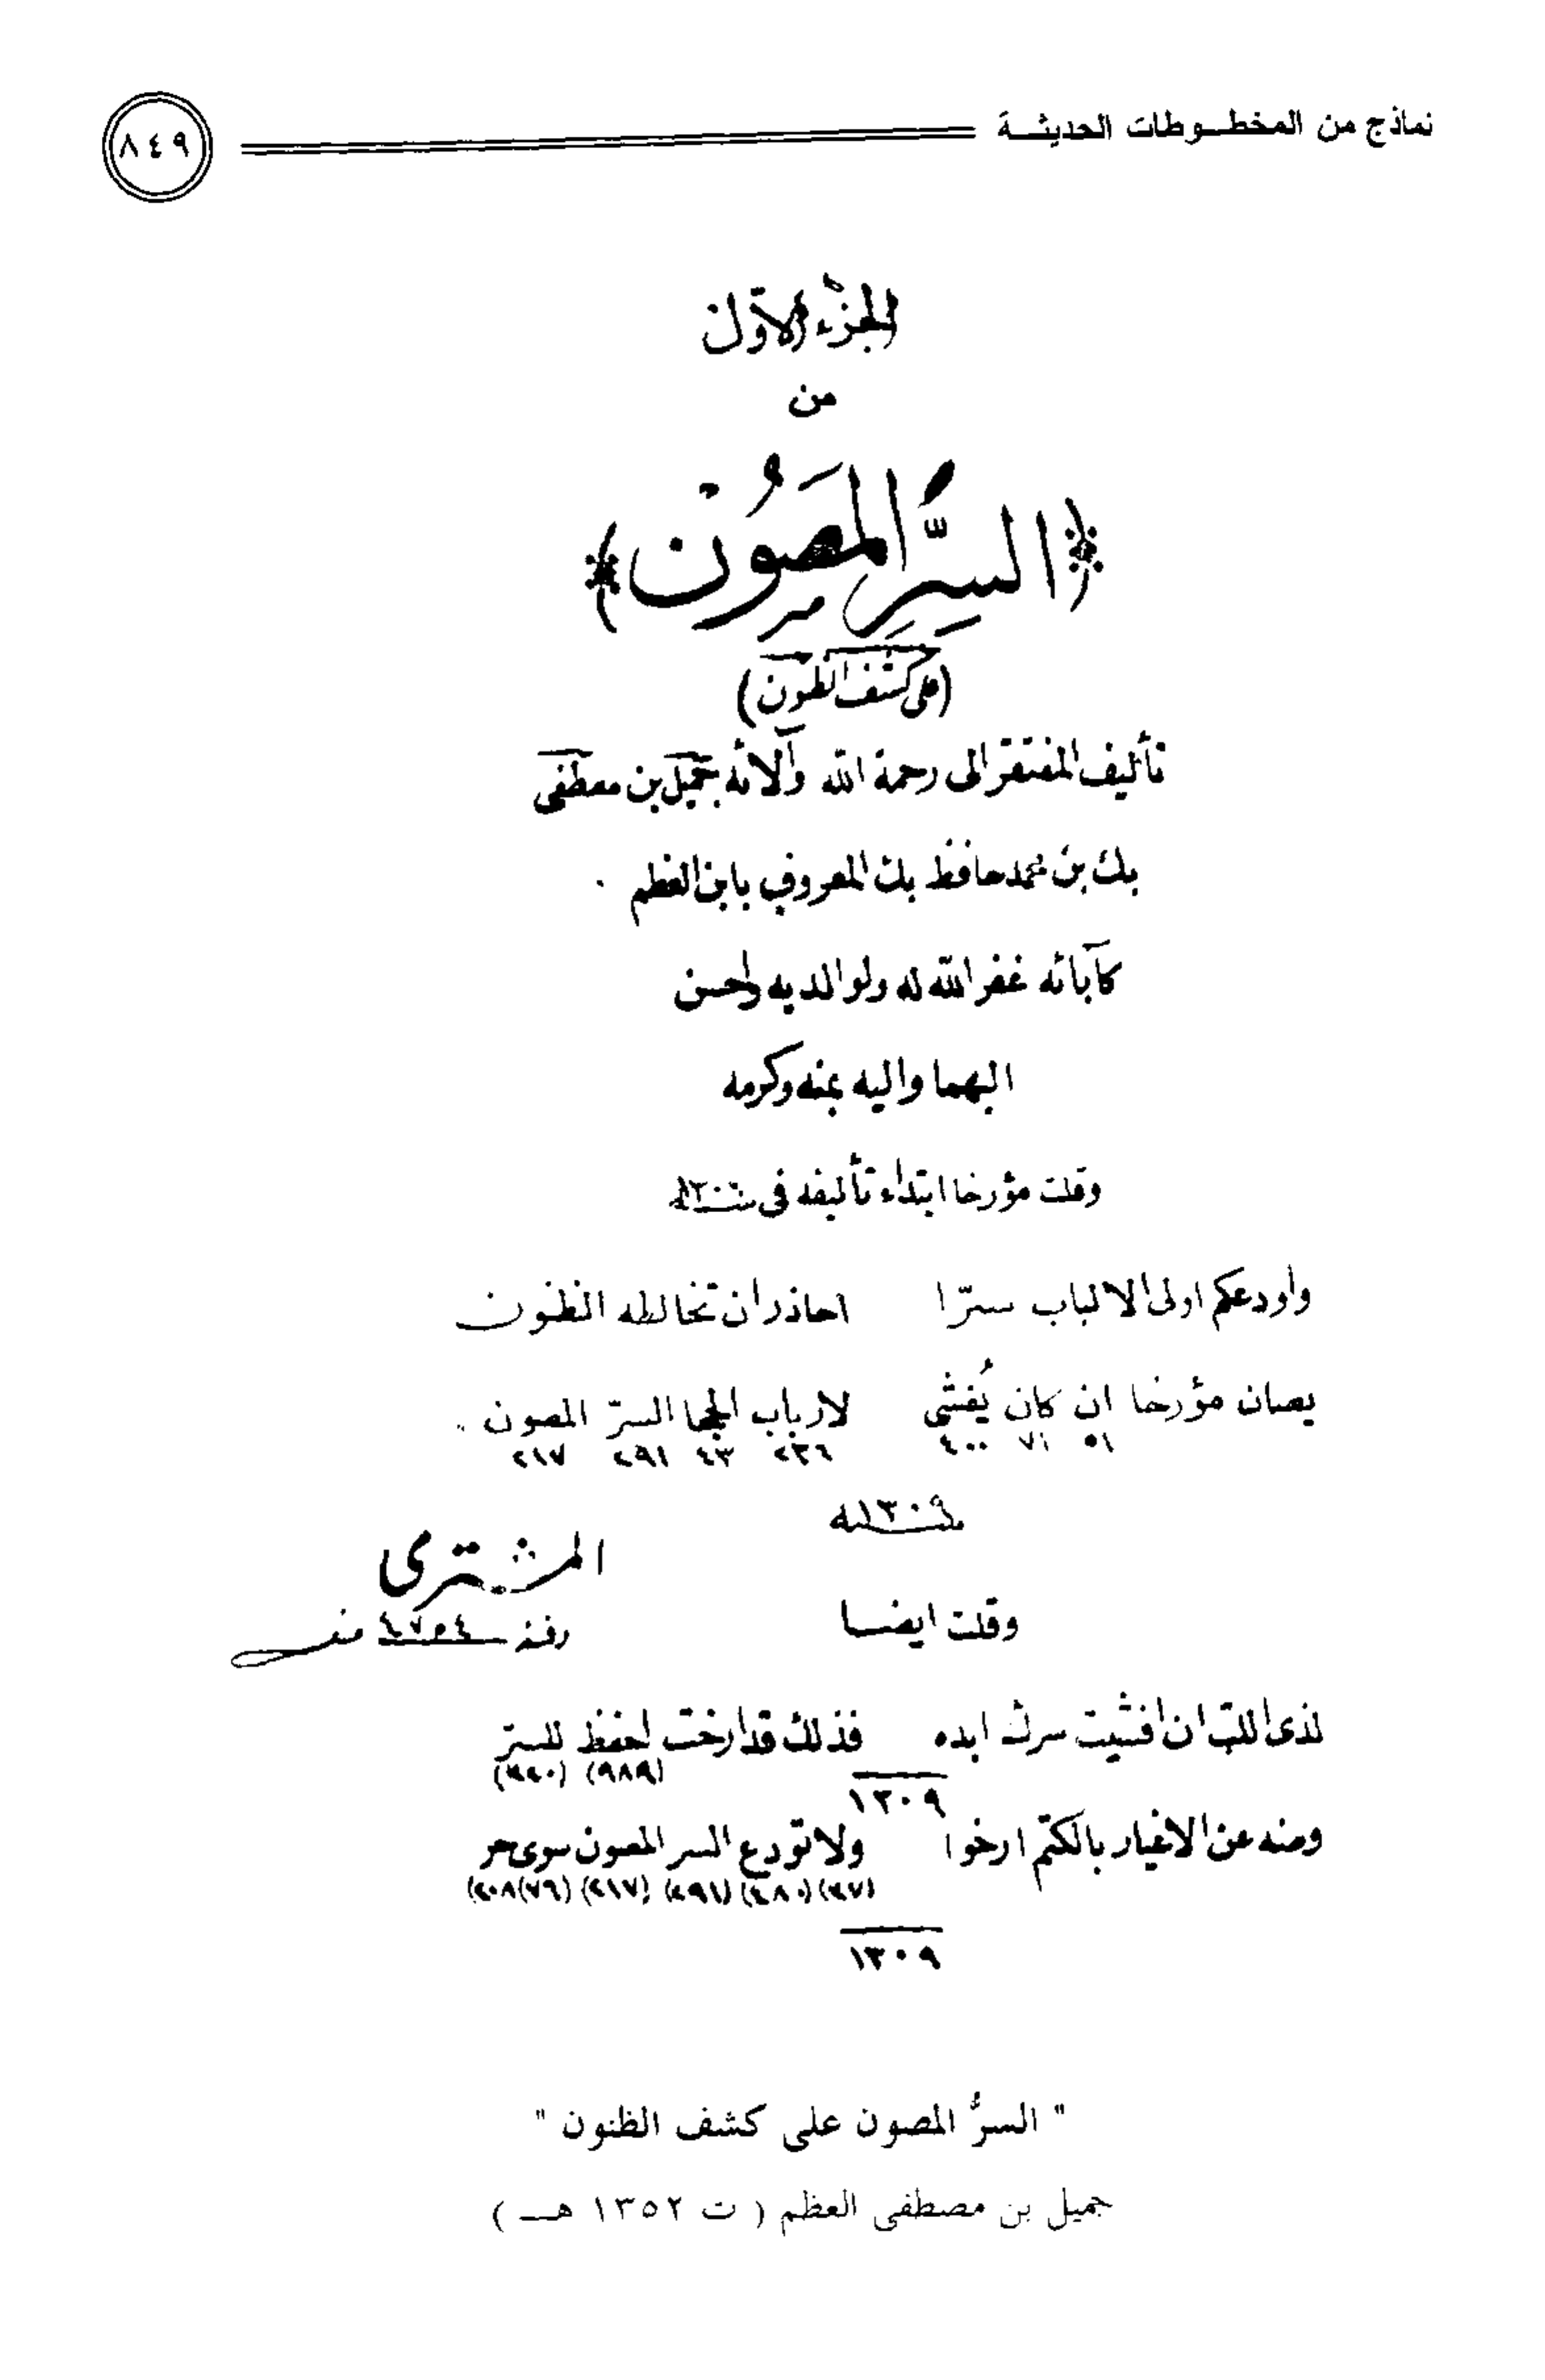 نماذج من المخطوطات الحديثة
٨٤٩
الجزء الأول
من
﴿السِّرُّ المَصُون﴾
(على كشف الظنون)
تأليف المفتقر الى رحمة الله وآلائه جميل بن مصطفى
بك بن محمد حافظ بك المعروف بابن العظم .
كآبائه غفر الله له ولوالديه واحسن
اليهما واليه بمنه وكرمه
وقلت مؤرخا ابتداء تأليفه فى سنه
واودعكم اولى الالباب سرّا احاذر ان تخالطه الظنون
يصان مؤرخا ان كان يُفشى لارباب الحجا السرّ المصون .
٥١ ٧١ ٤٠٠ ٢٣٦ ٤٣ ٢٩١ ٢١٧
سنه ١٣٠٩
المشترى
وقلت ايضا
لذى اللبّ ان افشيت سرك ابده فذلك قد ارخت احفظ للسرّ
(٩٨٩) (٣٢٠)
١٣٠٩
وصنه عن الاغيار بالكتم ارخوا ولا تودع السر المصون سوى حر
(٣٧) (٤٨٠) (٢٩١) (٢١٧) (٧٦) (٢٠٨)
١٣٠٩
" السرُّ المصون على كشف الظنون "
جميل بن مصطفى العظم ( ت ١٣٥٢ هـ )